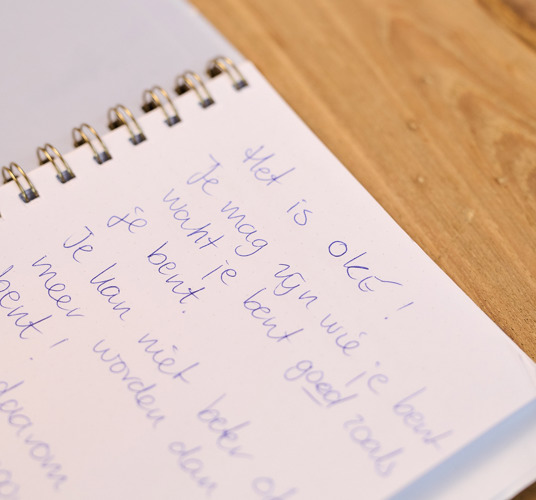 Het is OKÉ!
Je mag zijn wie je bent
waht je bent good zoals
je bent.
Je kan niet beter of
meer worden dan
bent!
daarom